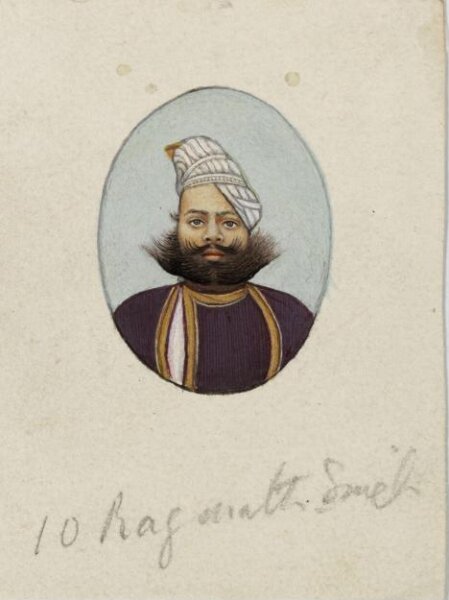 10 Ragonath Singh